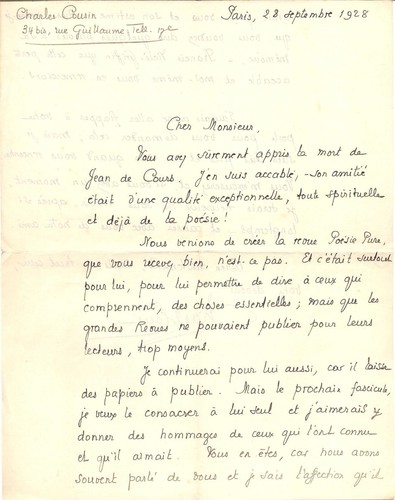 Charles Cousin
34 bis, rue Guillaume Tell. 17e
Paris, 28 Septembre 1928
Cher Monsieur,
Vous avez sûrement appris la mort de
Jean de Cours. J'en suis accablé, son amitié
était d'une qualité exceptionnelle, toute spirituelle
et déjà de la poésie!
Nous venions de créer la revue Poésie Pure,
que vous recevez bien, n'est-ce pas. Et c'était surtout
pour lui, pour lui permettre de dire à ceux qui
comprennent, des choses essentielles; mais que les
grandes Revues ne pouvaient publier pour leurs
lecteurs, trop moyens.
Je continuerai pour lui aussi, car il laisse
des papiers à publier. Mais le prochain fascicule,
je veux le consacrer à lui seul et j'aimerais y
donner des hommages de ceux qui l'ont connu
et qu'il aimait. Vous en êtes, car nous avons
souvent parlé de vous et je sais l'affection qu'il